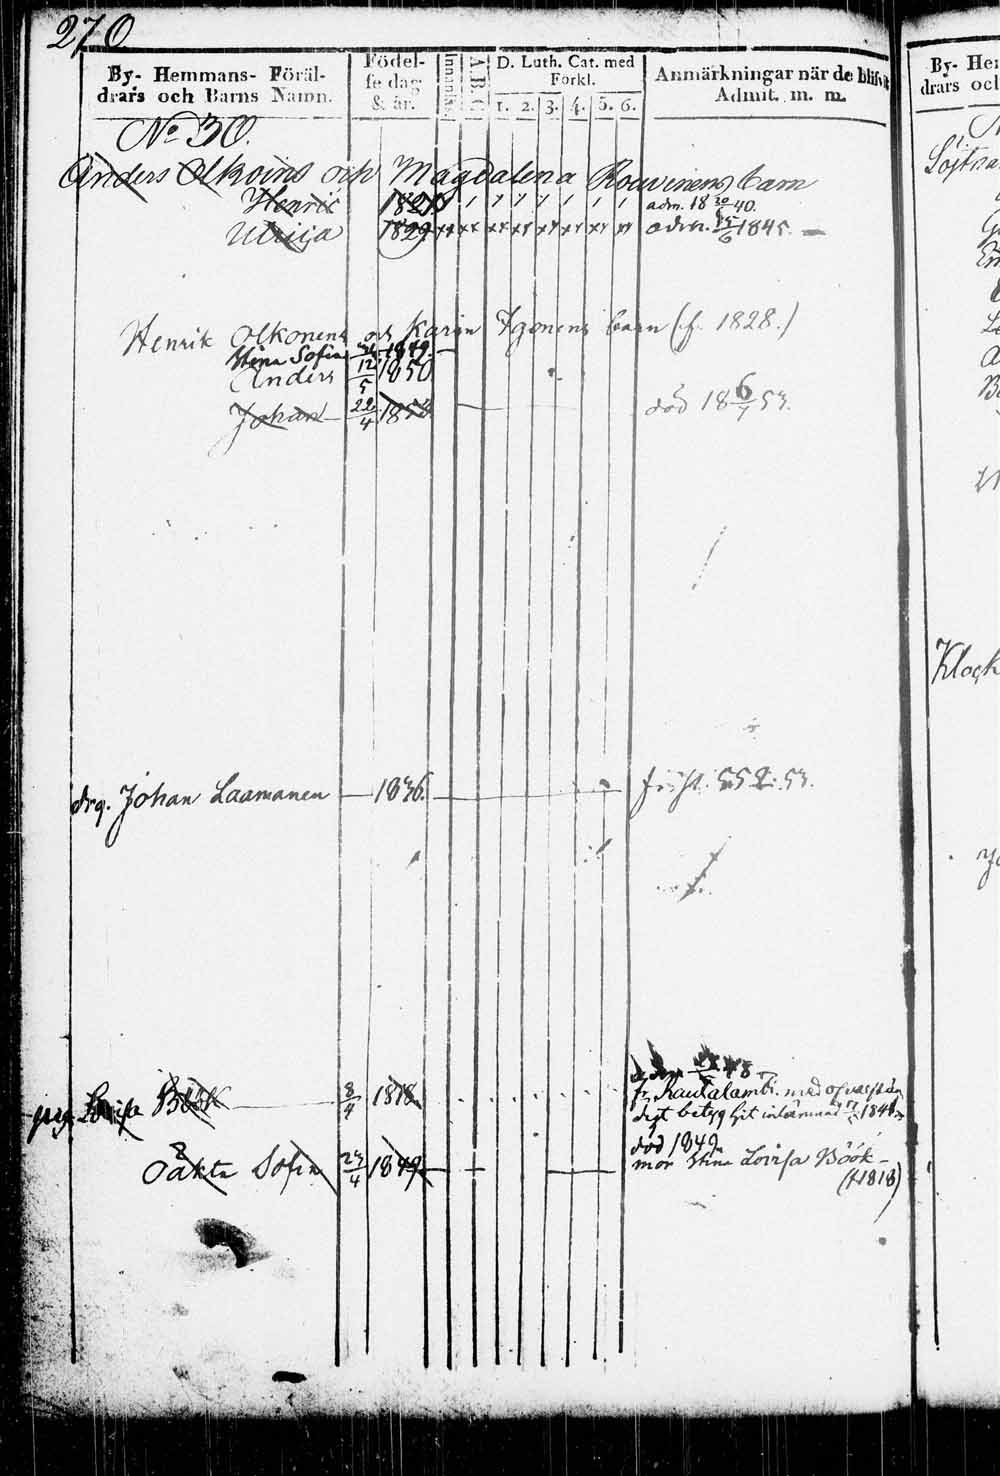 270
By- Hemmans- Föräl-
drars och Barns Namn.
Födel-
se dag
& år.
Innanläs.
A.B.C.
D. Luth. Cat. med
Förkl.
1. 2. 3. 4. 5. 6.
Anmärkningar när de blifvit
Admit. m. m.
No 30.
Anders Olkoins och Magdalena Rouvinens barn
Henric 1821 adm. 18 40.
Ulrica 1829 adm. 15/6 1845.
Henrik Olkonens och Karin barn (f. 1828.)
Stina Sofia 1849.
Anders 12/5 1850
Johan 22/4 1853 död 18 6/7 53.
drg. Johan Laamanen 1836.
Lovisa Böök 8/4 1818
48
fr. Rautalambi med
digt betyg hit 1848
Oäkta Sofia 23/4 1849
död 1849
mor Stina Lovisa Böök
(f. 1818)
By- Hem
drars och
Klock